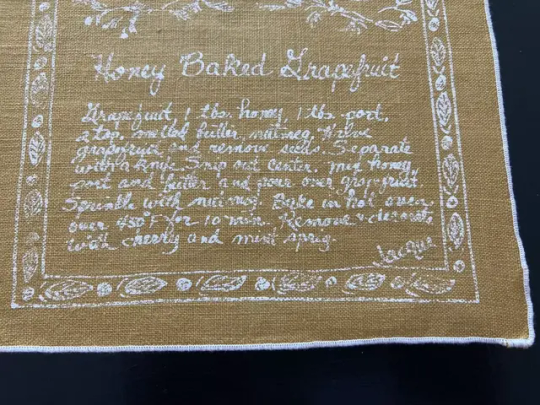 Honey Baked Grapefruit
Grapefruit, 1 tbs. honey, 1 tbs. port,
2 tsp. melted butter, nutmeg. Halve
grapefruit and remove seeds. Separate
with a knife. Snip out center. Mix honey,
port and butter and pour over grapefruit.
Sprinkle with nutmeg. Bake in hot oven
over 450° for 10 min. Remove & decorate
with cherry and mint sprig.